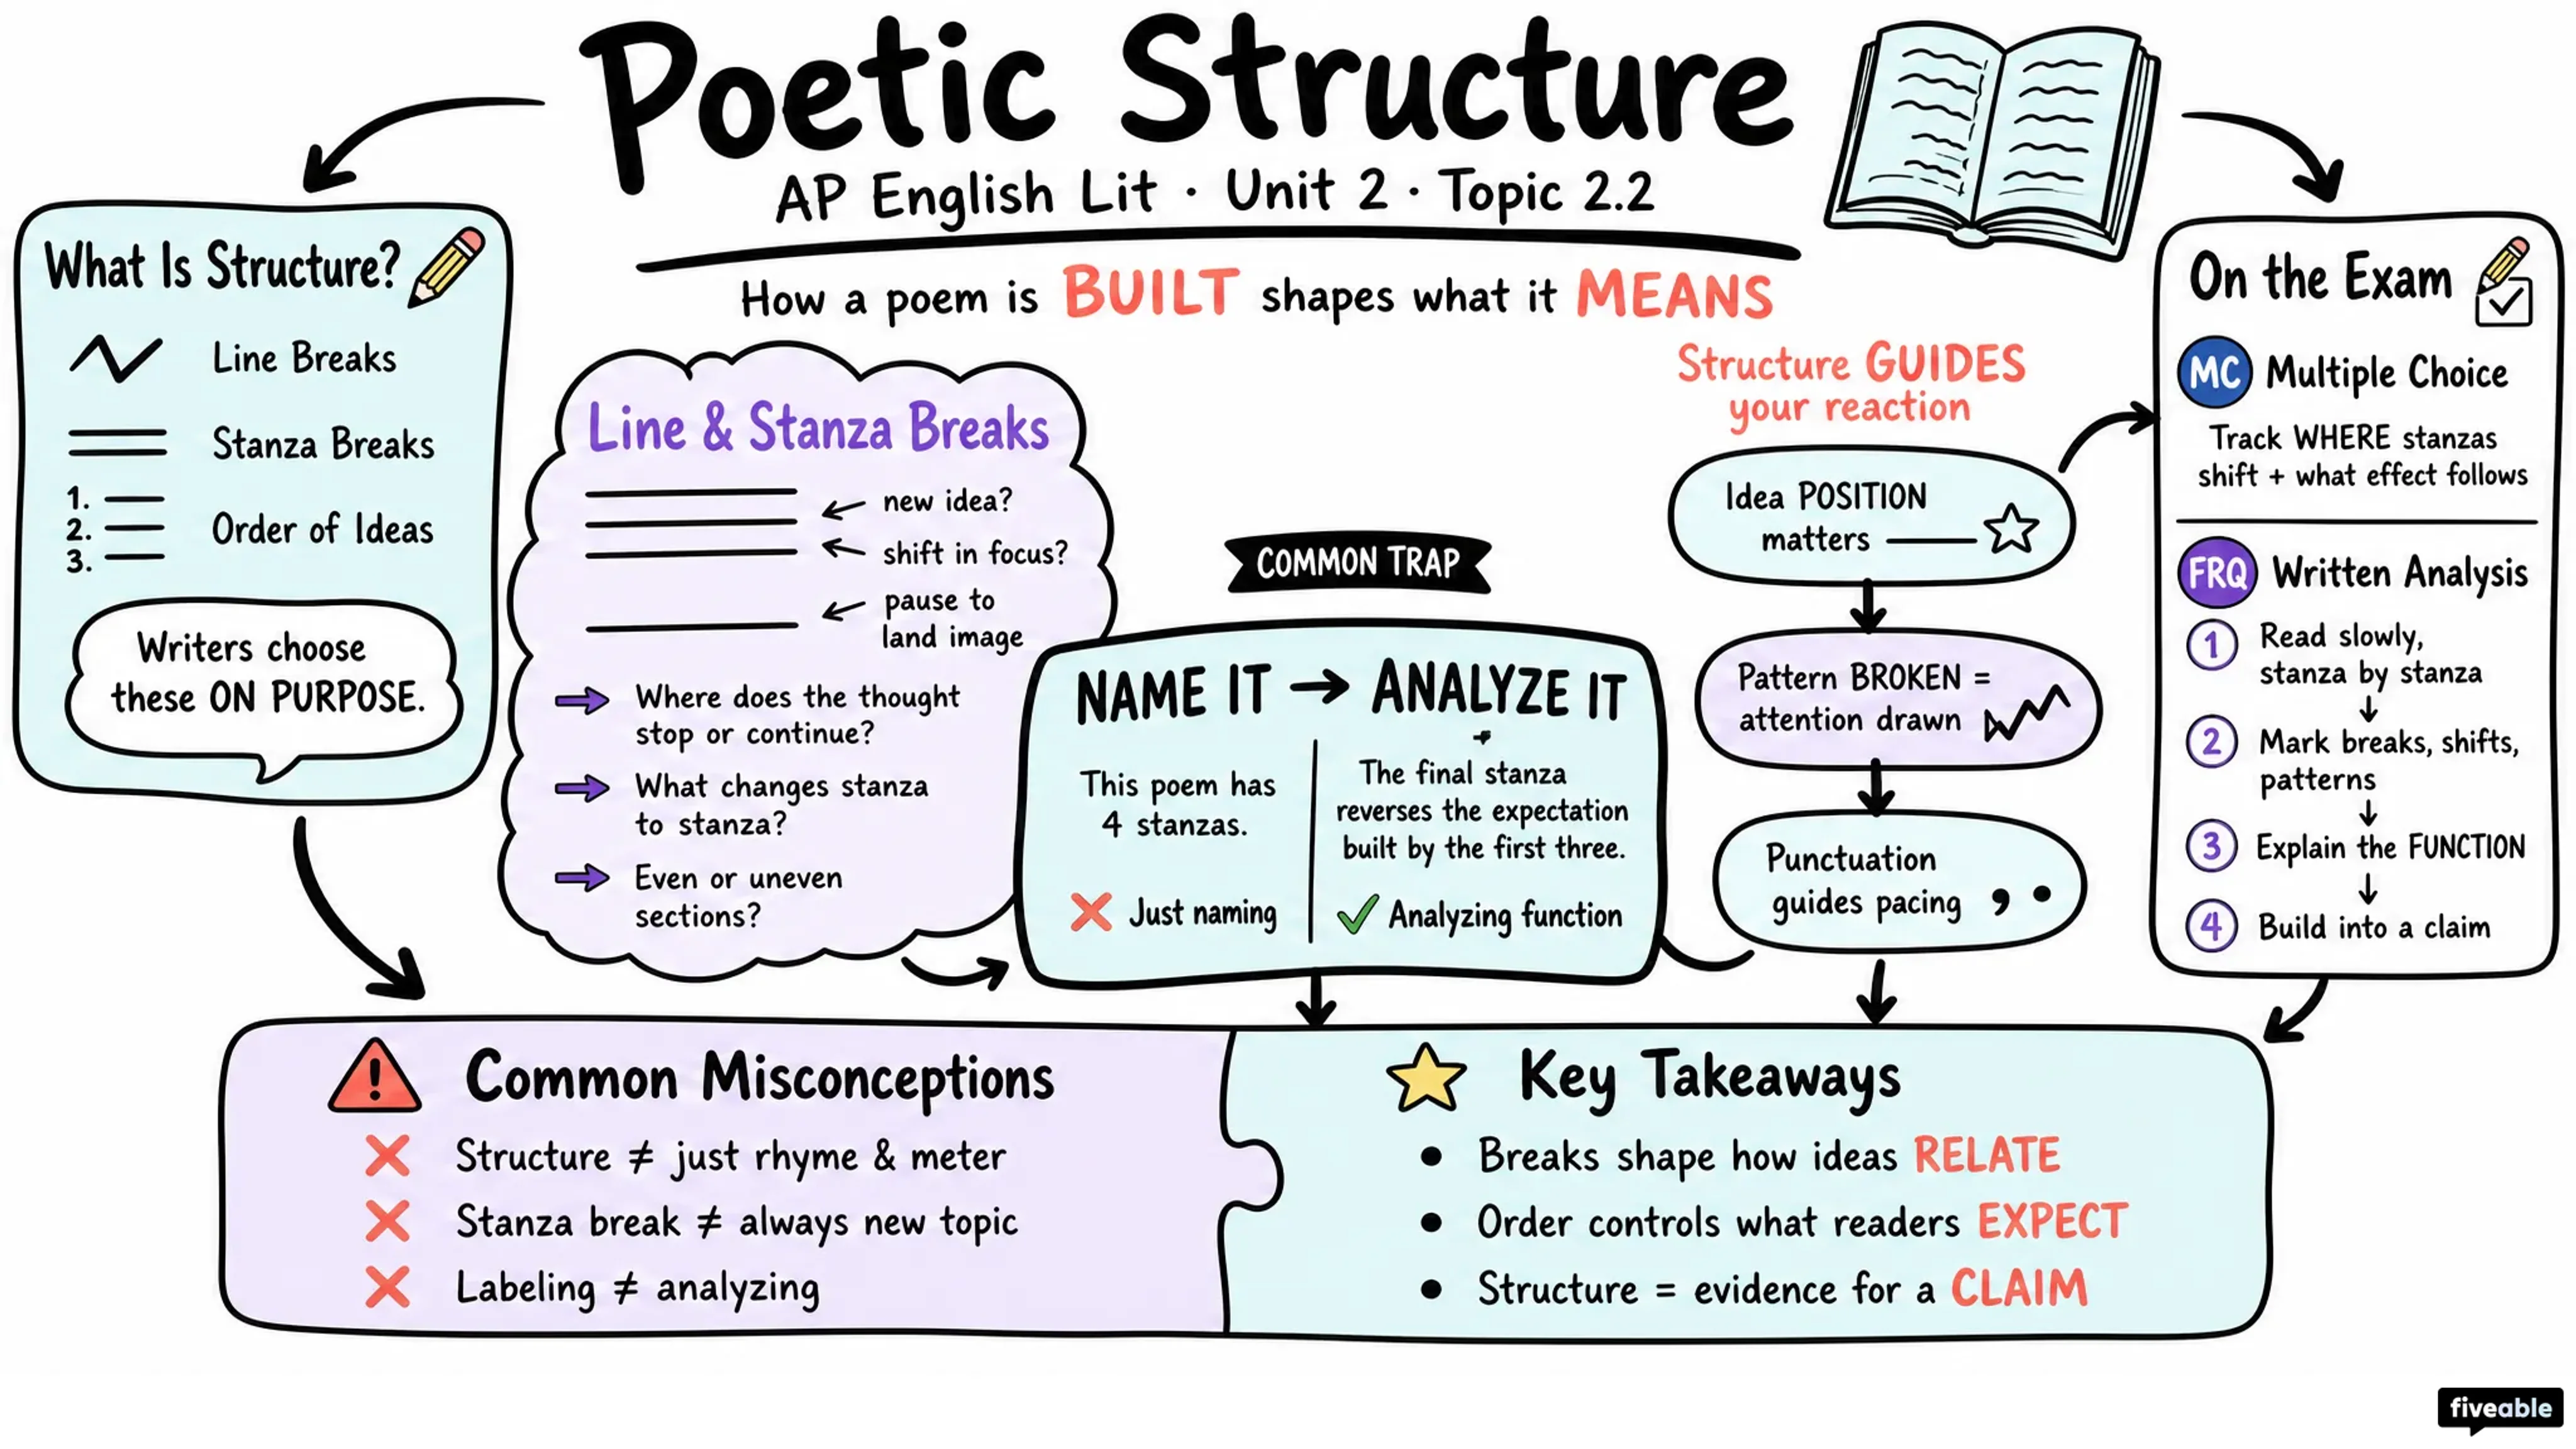 Poetic Structure
AP English Lit · Unit 2 · Topic 2.2
How a poem is BUILT shapes what it MEANS
What Is Structure?
Line Breaks
Stanza Breaks
1.
2.
3.
Order of Ideas
Writers choose
these ON PURPOSE.
Line & Stanza Breaks
new idea?
shift in focus?
pause to
land image
Where does the thought
stop or continue?
What changes stanza
to stanza?
Even or uneven
sections?
COMMON TRAP
NAME IT → ANALYZE IT
This poem has
4 stanzas.
Just naming
The final stanza
reverses the expectation
built by the first three.
Analyzing function
Structure GUIDES
your reaction
Idea POSITION
matters
Pattern BROKEN =
attention drawn
Punctuation
guides pacing , .
On the Exam
MC Multiple Choice
Track WHERE stanzas
shift + what effect follows
FRQ Written Analysis
1 Read slowly,
stanza by stanza
2 Mark breaks, shifts,
patterns
3 Explain the FUNCTION
4 Build into a claim
! Common Misconceptions
Structure ≠ just rhyme & meter
Stanza break ≠ always new topic
Labeling ≠ analyzing
Key Takeaways
• Breaks shape how ideas RELATE
• Order controls what readers EXPECT
• Structure = evidence for a CLAIM
fiveable